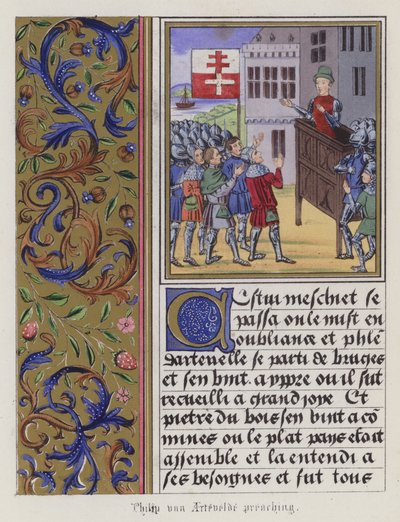 Cestui meschief se
passa on le mist en
oubliance et phle
dartevelle se parti de bruges
et sen vint a yppre ou il fut
recueilli a grand joye Et
pietre du bois sen vint a cō
mines ou le plat pays estoit
assemble et la entendi a
ses besoignes et fut tous
Philip van Artevelde preaching.